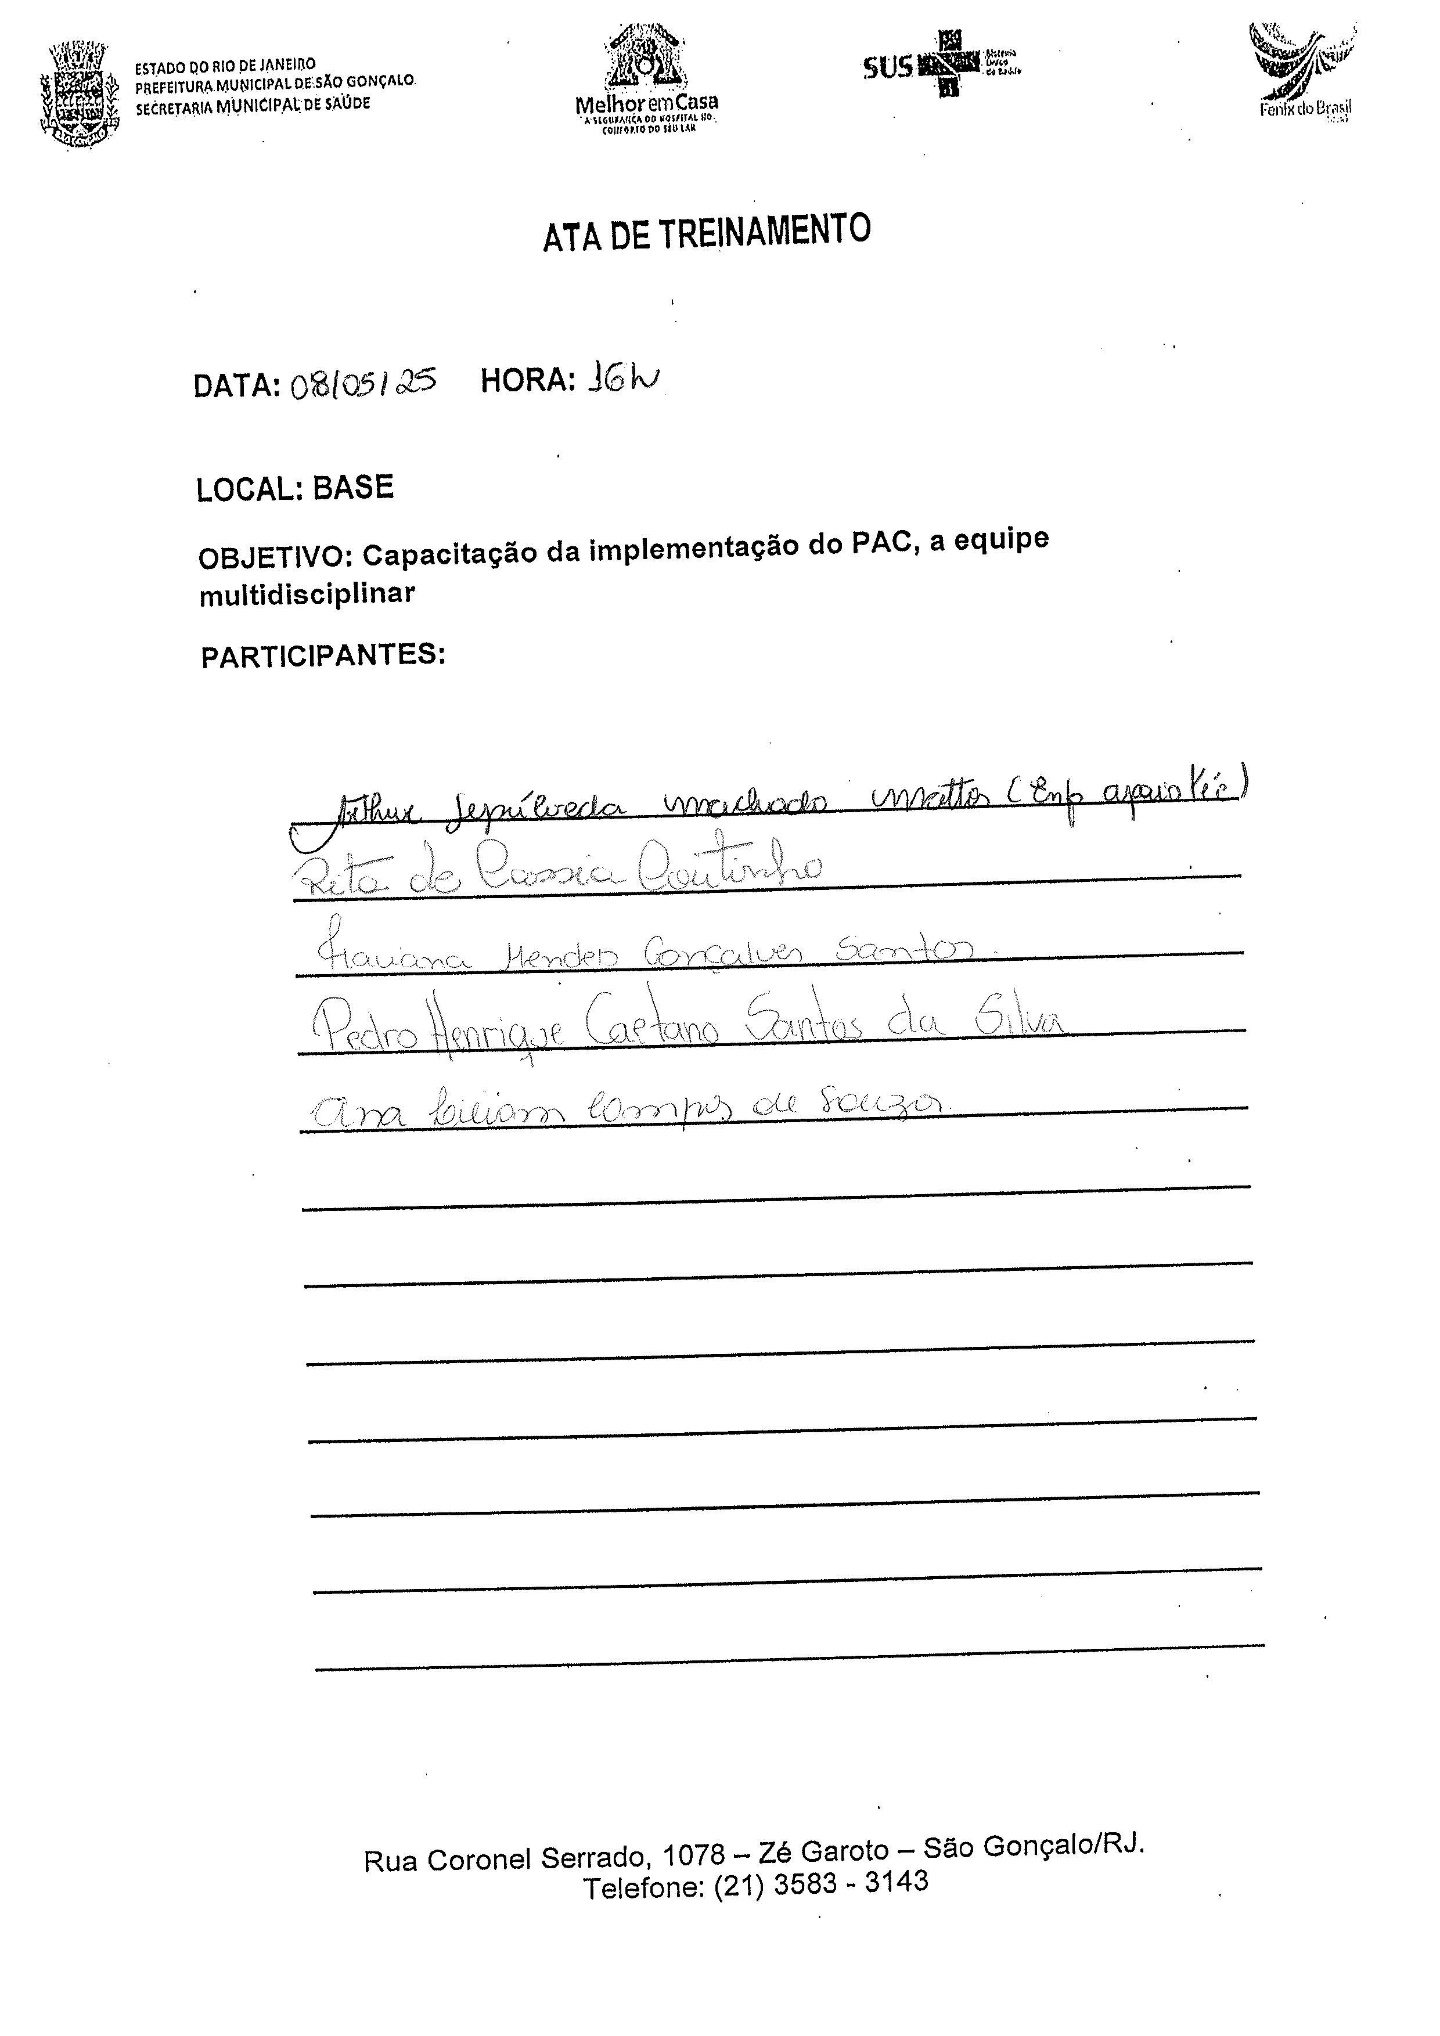 ESTADO DO RIO DE JANEIRO
PREFEITURA MUNICIPAL DE SÃO GONÇALO
SECRETARIA MUNICIPAL DE SAÚDE
Melhor em Casa
A SEGURANÇA DO HOSPITAL NO
CONFORTO DO SEU LAR
SUS
Sistema
Único
de Saúde
Fenix do Brasil
ATA DE TREINAMENTO
DATA: 08/05/25 HORA: 16h
LOCAL: BASE
OBJETIVO: Capacitação da implementação do PAC, a equipe
multidisciplinar
PARTICIPANTES:
Arthur Sepúlveda Machado Mattos (Enf apoio téc)
Rita de Cassia Coutinho
Mendes Gonçalves Santos
Pedro Henrique Caetano Santos da Silva
Ana Liliam Campos de Souza
Rua Coronel Serrado, 1078 – Zé Garoto – São Gonçalo/RJ.
Telefone: (21) 3583 - 3143